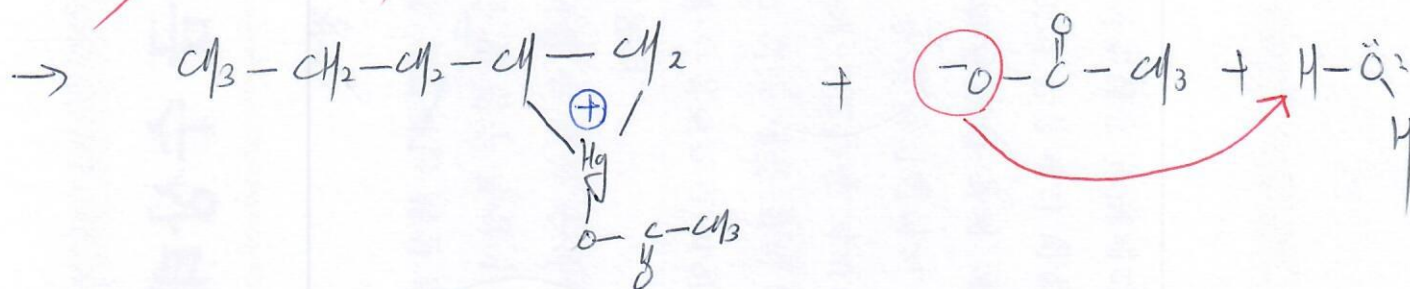 O
→ CH3 - CH2 - CH2 - CH - CH2 + -O - C - CH3 + H - Ö:
⊕
H
Hg
O - C - CH3
O